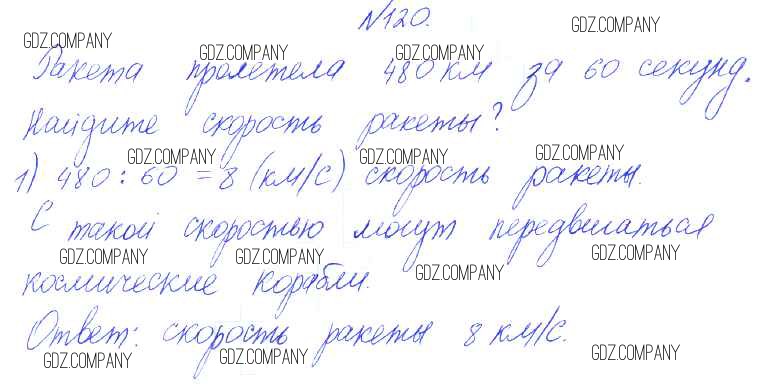 №120.
GDZ.COMPANY
GDZ.COMPANY GDZ.COMPANY GDZ.COMPANY
Ракета пролетела 480 км за 60 секунд.
Найдите скорость ракеты?
GDZ.COMPANY GDZ.COMPANY GDZ.COMPANY
1) 480 : 60 = 8 (км/с) скорость ракеты.
С такой скоростью могут передвигаться
GDZ.COMPANY GDZ.COMPANY GDZ.COMPANY GDZ.COMPANY
космические корабли.
Ответ: скорость ракеты 8 км/с.
GDZ.COMPANY GDZ.COMPANY GDZ.COMPANY